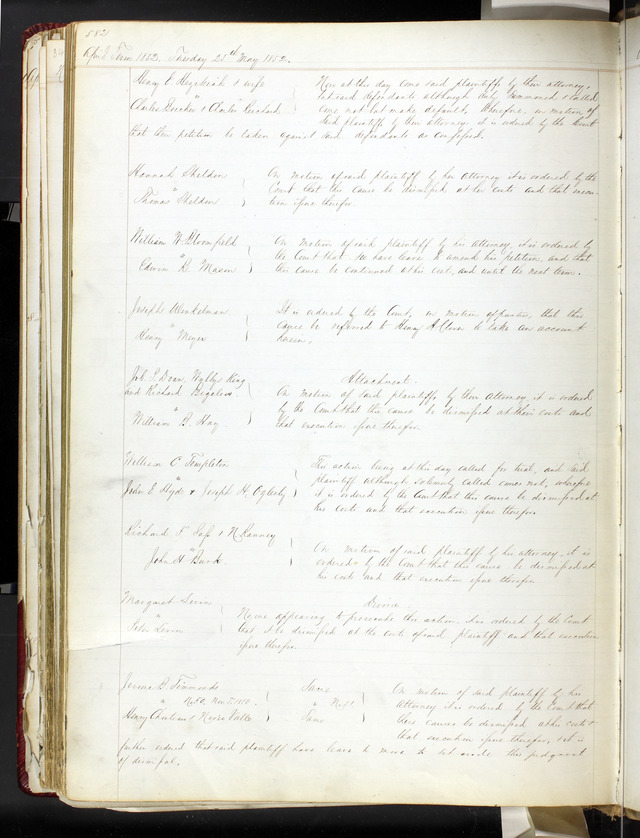 582
April Term 1852. Tuesday 25th May 1852.
Mary E. Hezekiah & wife
vs
Charles & Charles
Now at this day come said plaintiffs by their attorney,
but said defendants although duly summoned & called
come not but make default, Wherefore on motion of
said plaintiffs by their attorney, it is ordered by the Court
that their petition be taken against said defendants as confessed.
Hannah Sheldon
vs
Thomas Sheldon
On motion of said plaintiff by her attorney it is ordered by the
Court that the cause be dismissed at her costs and that execu-
tion issue therefor.
William W. Bloomfield
vs
Edwin B. Mason
On motion of said plaintiff by his attorney, it is ordered by
the Court that he have leave to amend his petition, and that
this cause be continued at his cost, and until the next term.
Joseph Winkelman
vs
Henry Meyer
It is ordered by the Court, on motion of parties, that this
cause be referred to Henry A. to take an account
herein.
Jno. I. Doan, Wyllys King
and Richard Bigelow
vs
William B. Hay
Attachment.
On motion of said plaintiffs, by their attorney, it is ordered
by the Court that this cause be dismissed at their costs and
that execution issue therefor.
William C. Templeton
vs
John E. Hyde & Joseph H. Oglesby
This action being at this day called for trial, and said
plaintiff although solemnly called comes not, wherefore
it is ordered by the Court that this cause be dismissed at
his costs and that execution issue therefor.
Richard F. Sass & N. Ranney
vs
John H. Burk
On motion of said plaintiff by his attorney, it is
ordered by the Court that this cause be dismissed at
his costs and that execution issue therefor.
Margaret Levin
vs
Peter Levin
Divorce
No one appearing to prosecute this action, it is ordered by the Court
that it be dismissed at the costs of said plaintiff and that execution
issue therefor.
B. Simmonds
vs No. 50, Nov. T. 1850.
Henry Chouteau & Neree Valle
Same
vs No. 51
Same
On motion of said plaintiff by his
attorney it is ordered by the Court that
these causes be dismissed at his costs &
that execution issue therefor, & it is
further ordered that said plaintiff have leave to move to set aside this judgment
of dismissal.